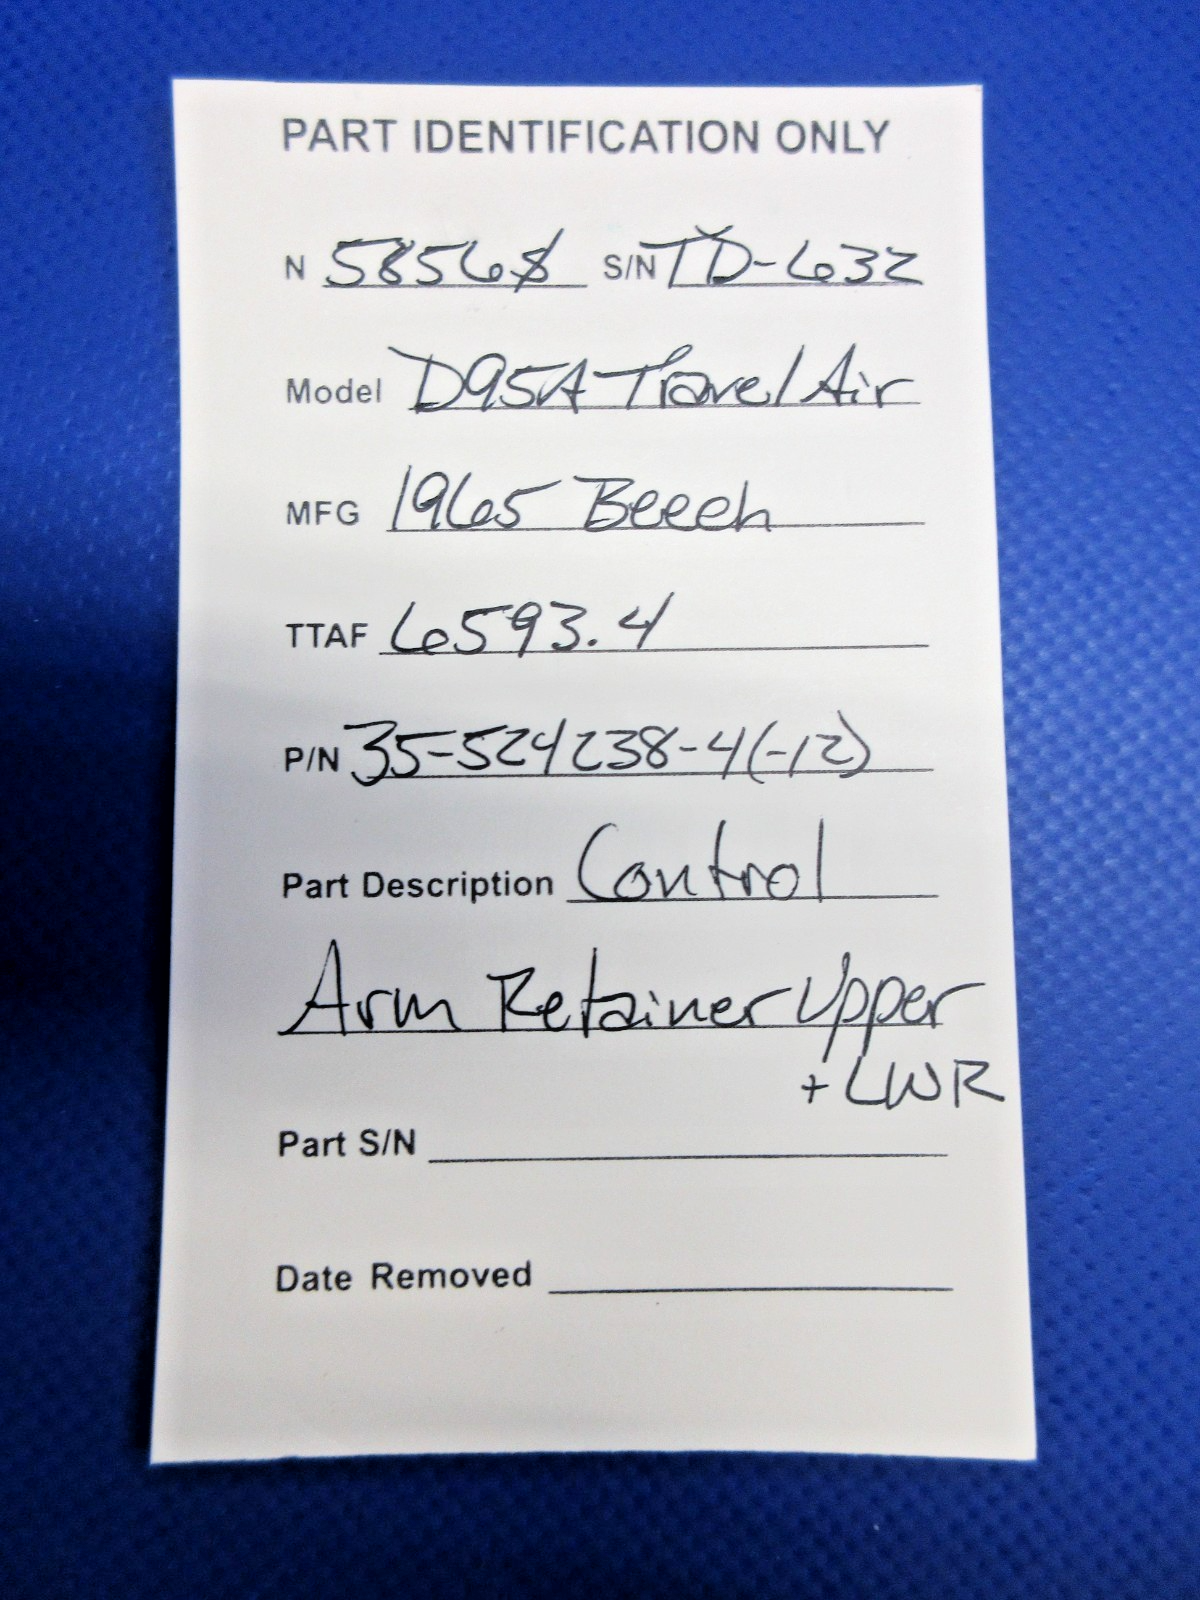 PART IDENTIFICATION ONLY
N 5856S S/N TD-632
Model D95A Travel Air
MFG 1965 Beech
TTAF 6593.4
P/N 35-524238-4(-12)
Part Description Control
Arm Retainer Upper
+ LWR
Part S/N
Date Removed